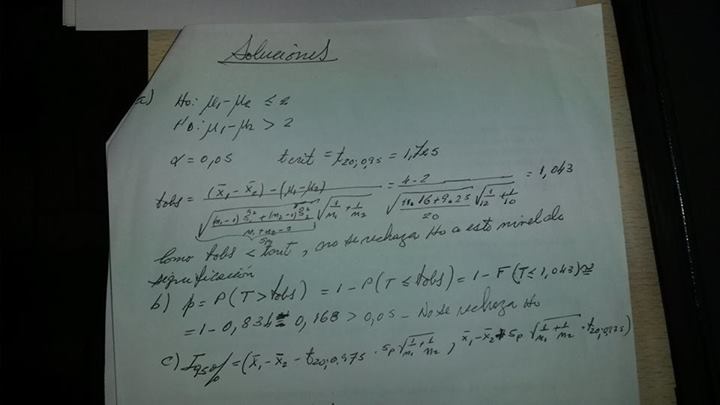 Soluciones
a) H0: μ1-μ2 ≤ 2
H0: μ1-μ2 > 2
α = 0,05 tcrit = t20;0,95 = 1,725
tobs = ((x̄1-x̄2)-(μ1-μ2)) / (√(((n1-1)ŝ1²+(n2-1)ŝ2²)/(n1+n2-2)) √(1/n1+1/n2)) = (4-2) / (√((11.16+9.25)/20) √(1/12+1/10)) = 1,043
Sp
Como tobs < tcrit, no se rechaza H0 a este nivel de
significación
b) p = P(T>tobs) = 1-P(T≤tobs) = 1-F(T≤1,043) ≅
= 1-0,832 ≅ 0,168 > 0,05 - No se rechaza H0
c) I95% = (x̄1-x̄2 - t20;0,975 · Sp √(1/n1+1/n2), x̄1-x̄2 + Sp √(1/n1+1/n2) · t20;0,975)